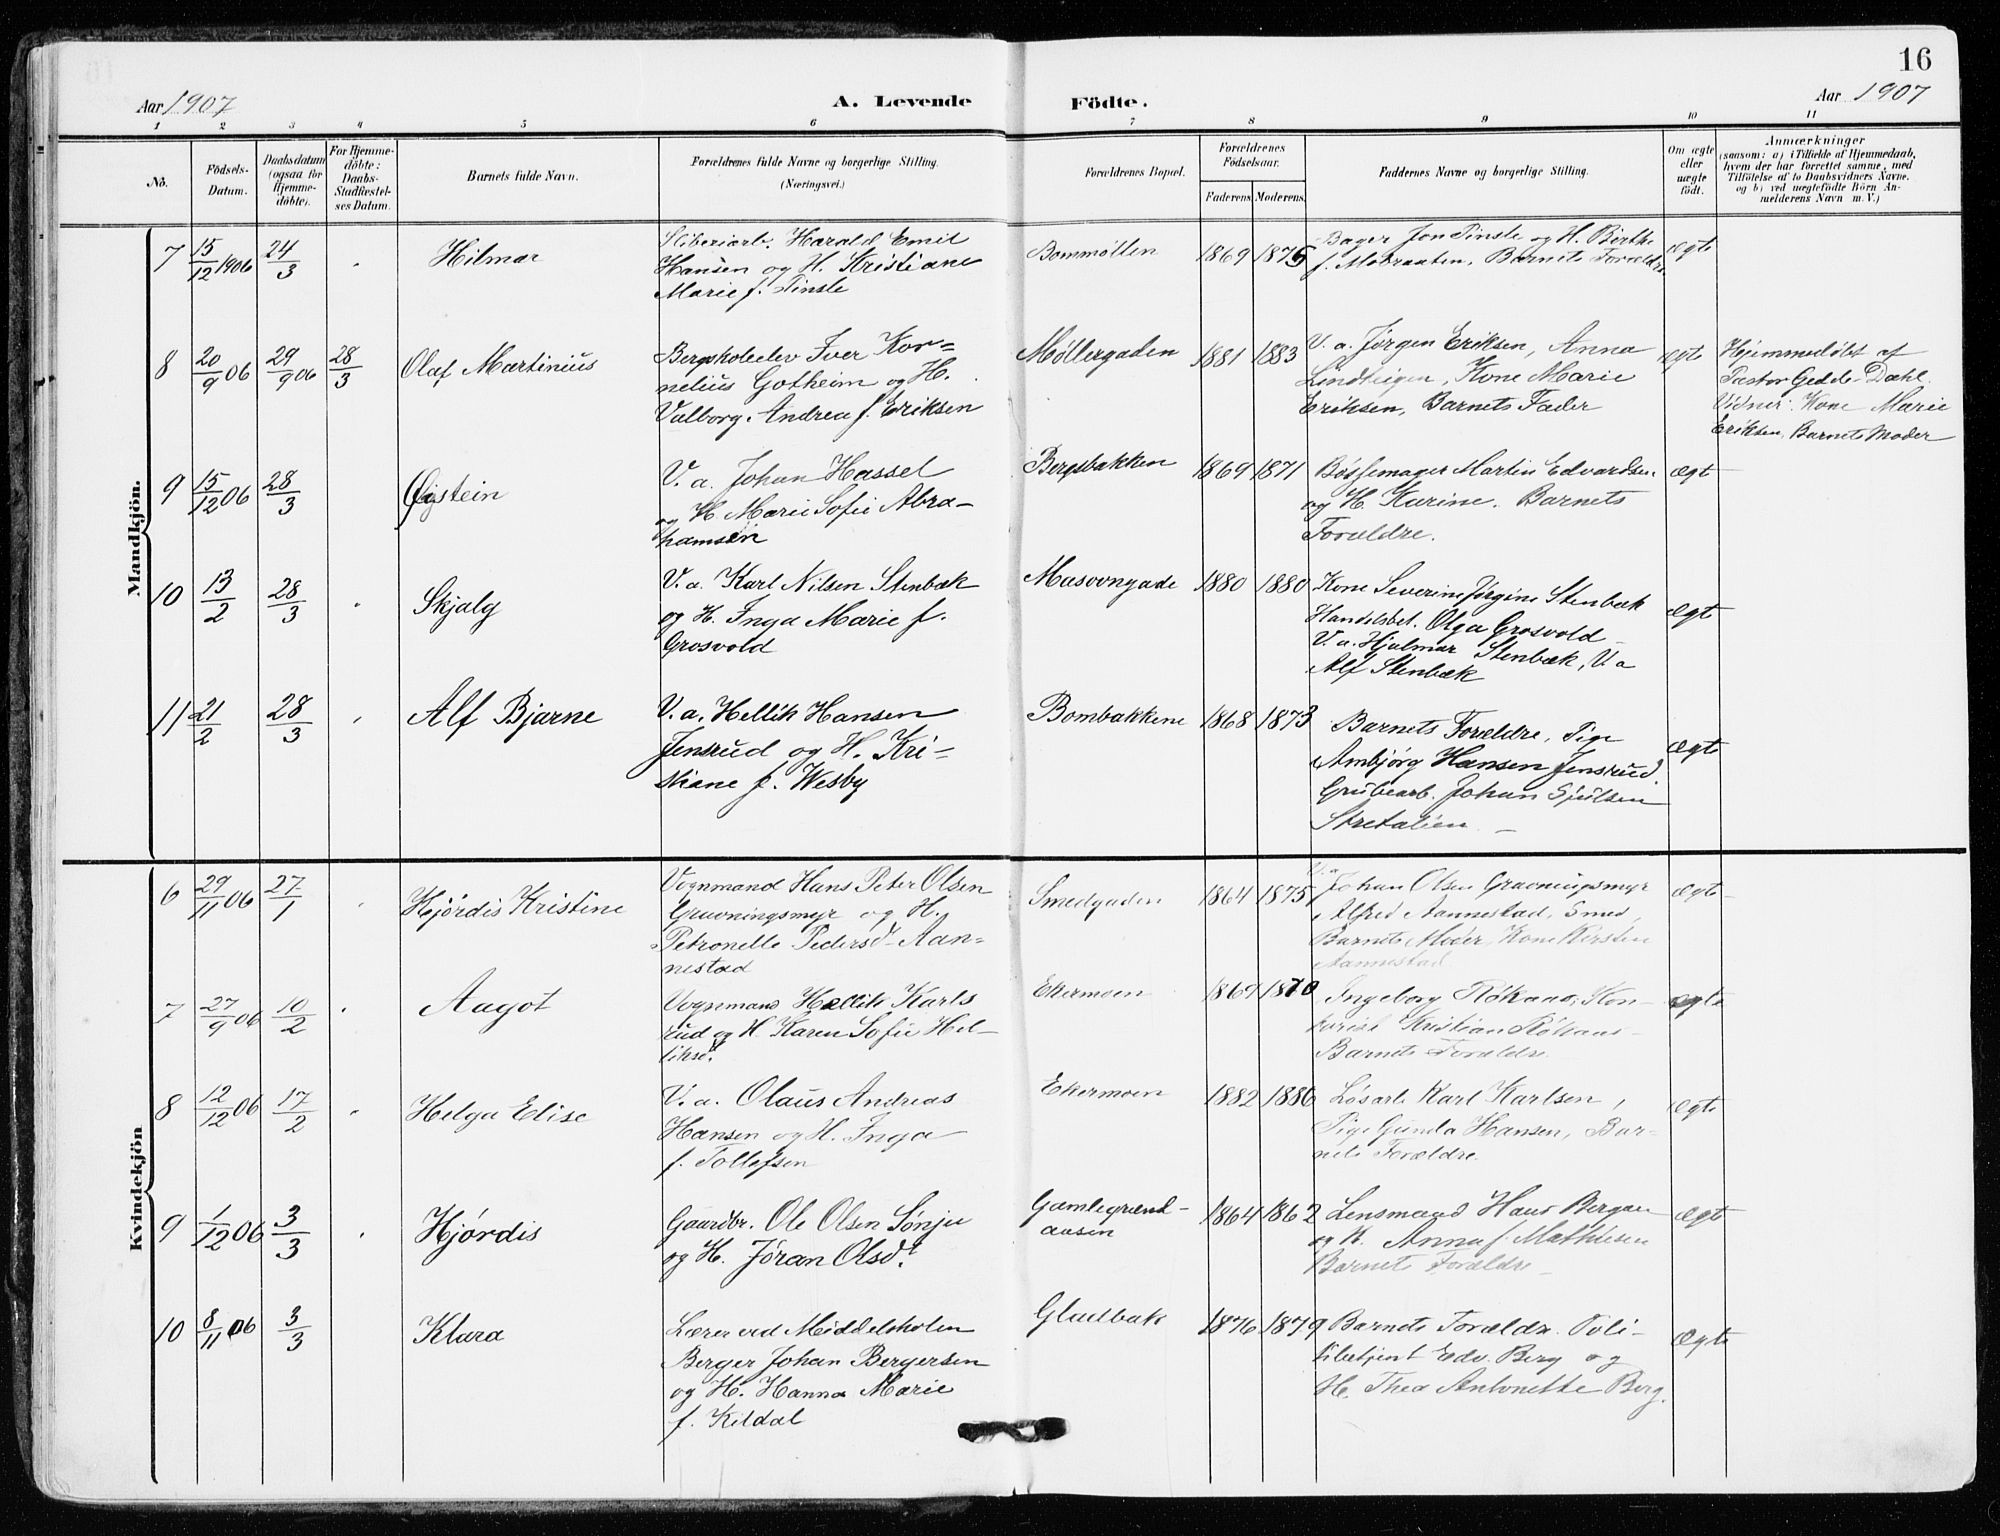 16
Aar 1907
A. Levende Födte.
Aar 1907
1 2 3 4 5 6 7 8 9 10 11
No.
Födsels-
Datum.
Daabsdatum
(ogsaa for
Hjemme-
döbte).
For Hjemme-
döbte:
Daabs-
Stadfæstel-
ses Datum.
Barnets fulde Navn.
Forældrenes fulde Navne og borgerlige Stilling.
(Næringsvei.)
Forældrenes Bopæl.
Forældrenes
Födselsaar.
Faderens Moderens
Faddernes Navne og borgerlige Stilling.
Om ægte
eller
uægte
født.
Anmærkninger
(saasom: a) i Tilfælde af Hjemmedaab,
hvem der har forrettet samme, med
Tilföielse af to Daabsvidners Navne.
og b) ved uægtefödte Börn An-
melderens Navn m. V.)
Mandkjön.
7 15/12 1906 24/3 Hilmar
Sliberiarb. Harald Emil
Hansen og H. Kristiane
Marie f. Tinsle
Bommøllen 1869 1875
Bager Jon Tinsle og H. Birthe
f. Mobraaten, Barnets Forældre
ægte
8 20/9 06 29/9 06 28/3 Olaf Martinius
Bergskoleelev Iver Kor-
nelius Gotheim og H.
Valborg Andrea f. Eriksen
Møllergaden 1881 1883
V. a. Jørgen Eriksen, Anna
Kone Marie
Eriksen, Barnets Fader
ægte
Hjemmedøbt af
Pastor Gedde-Dahl.
Vidner: Kone Marie
Eriksen, Barnets Moder
9 15/12 06 28/3 Øistein
V. a. Johan Hassel
og H. Marie Sofie Abra-
hamsen
Bergsbakken 1869 1871
Bøssemager Martin Edvardsen
og H. Karine. Barnets
Forældre.
ægt
10 13/2 28/3 Skjalg
V. a. Karl Nilsen Stenbæk
og H. Inga Marie f.
Grosvold
Masovngade 1880 1880
Kone Severine Jørgine Stenbæk
Handelsbet. Olga Grosvold
V. a. Hjalmar Stenbæk, V. a
Alf Stenbæk
Ægt
11 21/2 28/3 Alf Bjarne
V. a. Hellik Hansen
Jensrud og H. Kri-
stiane f. Wesby
Bombakkene 1868 1873
Barnets Forældre, Pige
Ambjørg Hansen Jensrud.
Grubearb. Johan
Ægte
Kvindekjön
6 29/11 06 27/1 Hjørdis Kristine
Vognmand Hans Peter Olsen
Gravningsmyr og H.
Petronelle Pedersd. Aan-
nestad
Smedgaden 1864 1875
V. a
Johan Olsen Gravningsmyr
Alfred Aannestad, Smed,
Barnets Moder, Kone Kirsten
Aannestad
Ægte
7 27/9 06 10/2 Aagot
Vognmand Hellik Karls
rud og H. Karen Sofie Hel-
liksd.
Ekermoen 1869 1870
Ingeborg Røkaas, Kon-
torist Kristian Røkaas
Barnets Forældre.
ægte
8 12/12 06 17/2 Helga Elise
V. a. Olaus Andreas
Hansen og H. Inga
f. Tollefsen
Ekermoen 1882 1886
Løsarb Karl Karlsen,
Pige Gunda Hansen, Bar-
nets Forældre.
Ægte
9 1/12 06 3/3 Hjørdis
Gaardbr. Ole Olsen Sønju
og H. Jøran Olsd.
Gamlegrend-
aasen
1864 1862
Lensmand Hans Bergan
og H. Anna f. Mathiesen
Barnets Forældre
Ægte
10 8/11 06 3/3 Klara
Lærer ved Middelskolen
Berger Johan Bergersen
og H. Hanna Marie
f. Kildal
Gladbak 1876 1879
Barnets Forældr. Poli-
tibetjent Edv. Berg og
H. Thea Antonette Berg.
Ægte